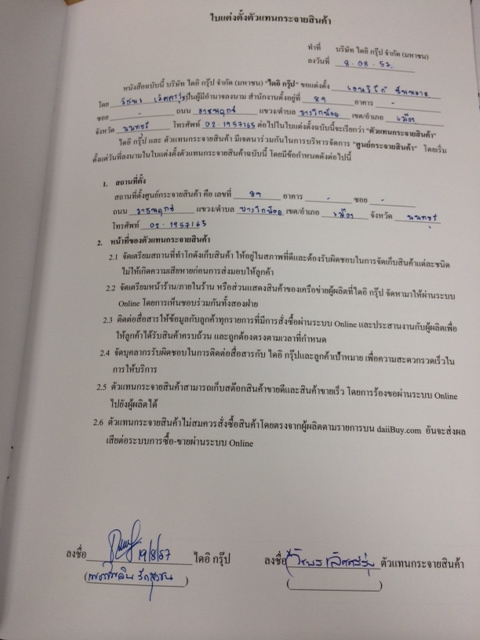 ใบแต่งตั้งตัวแทนกระจายสินค้า
ทำที่ บริษัท ไดอิ กรุ๊ป จำกัด (มหาชน)
ลงวันที่ 8.08.57
หนังสือฉบับนี้ บริษัท ไดอิ กรุ๊ป จำกัด (มหาชน) "ไดอิ กรุ๊ป" ขอแต่งตั้ง
โดย เป็นผู้มีอำนาจลงนาม สำนักงานตั้งอยู่ที่ 29 อาคาร -
ซอย - ถนน ราชพฤกษ์ แขวง/ตำบล บางรักน้อย เขต/อำเภอ เมือง
จังหวัด นนทบุรี โทรศัพท์ 02-1957163 ต่อไปในใบแต่งตั้งฉบับนี้จะเรียกว่า "ตัวแทนกระจายสินค้า"
ไดอิ กรุ๊ป และ ตัวแทนกระจายสินค้า มีเจตนาร่วมกันในการบริหารจัดการ "ศูนย์กระจายสินค้า" โดยเริ่ม
ตั้งแต่วันที่ลงนามในใบแต่งตั้งตัวแทนกระจายสินค้าฉบับนี้ โดยมีข้อกำหนดดังต่อไปนี้
1. สถานที่ตั้ง
สถานที่ตั้งศูนย์กระจายสินค้า คือ เลขที่ 29 อาคาร - ซอย -
ถนน ราชพฤกษ์ แขวง/ตำบล บางรักน้อย เขต/อำเภอ เมือง จังหวัด นนทบุรี
โทรศัพท์ 02-1957163
2. หน้าที่ของตัวแทนกระจายสินค้า
2.1 จัดเตรียมสถานที่ทำโกดังเก็บสินค้า ให้อยู่ในสภาพที่ดีและต้องรับผิดชอบในการจัดเก็บสินค้าแต่ละชนิด
ไม่ให้เกิดความเสียหายก่อนการส่งมอบให้ลูกค้า
2.2 จัดเตรียมหน้าร้าน/ภายในร้าน หรือส่วนแสดงสินค้าของเครือข่ายผู้ผลิตที่ไดอิ กรุ๊ป จัดหามาให้ผ่านระบบ
Online โดยการเห็นชอบร่วมกันทั้งสองฝ่าย
2.3 ติดต่อสื่อสารให้ข้อมูลกับลูกค้าทุกรายการที่มีการสั่งซื้อผ่านระบบ Online และประสานงานกับผู้ผลิตเพื่อ
ให้ลูกค้าได้รับสินค้าครบถ้วน และถูกต้องตรงตามเวลาที่กำหนด
2.4 จัดบุคลากรรับผิดชอบในการติดต่อสื่อสารกับ ไดอิ กรุ๊ปและลูกค้าเป้าหมาย เพื่อความสะดวกรวดเร็วใน
การให้บริการ
2.5 ตัวแทนกระจายสินค้าสามารถเก็บสต๊อกสินค้าขายดีและสินค้าขายเร็ว โดยการร้องขอผ่านระบบ Online
ไปยังผู้ผลิตได้
2.6 ตัวแทนกระจายสินค้าไม่สมควรสั่งซื้อสินค้าโดยตรงจากผู้ผลิตตามรายการบน daiiBuy.com อันจะส่งผล
เสียต่อระบบการซื้อ-ขายผ่านระบบ Online
ลงชื่อ 19/8/57 ไดอิ กรุ๊ป ลงชื่อ ตัวแทนกระจายสินค้า